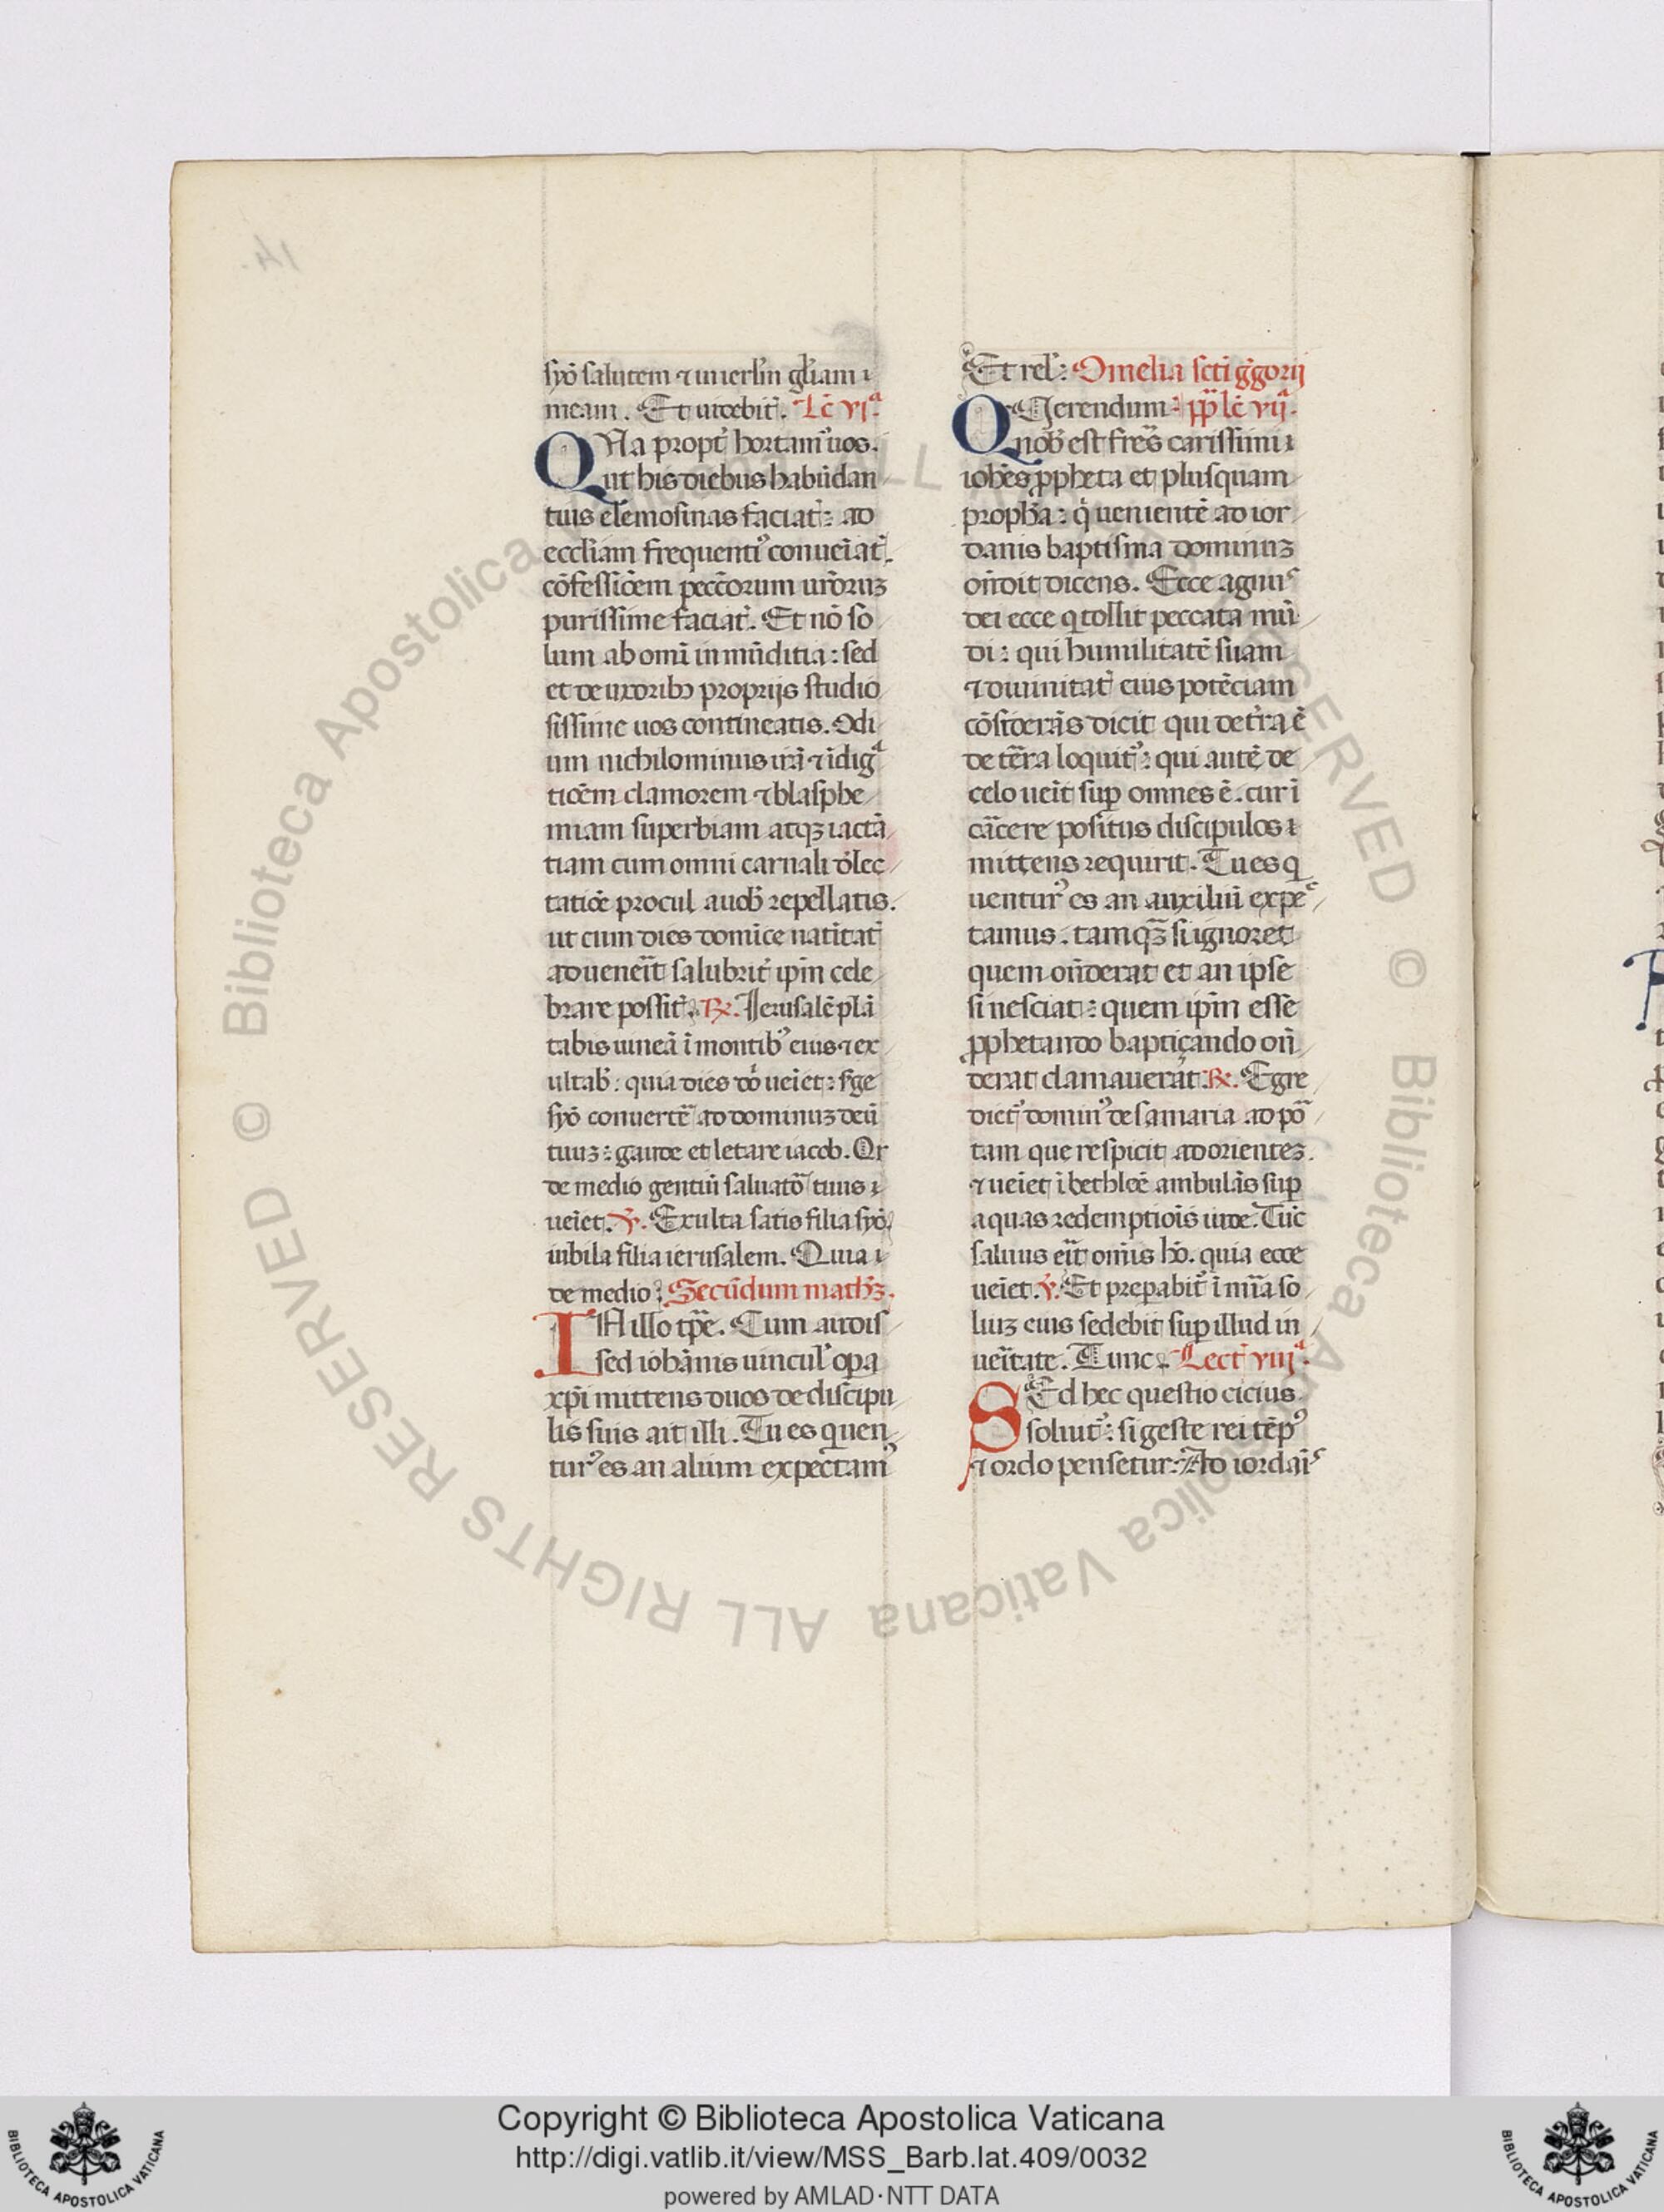 syō salutem ⁊ in ierl̄m gl̄iam
meam. Et uidebit̉. Lc̄ vıᵃ.
QVa propt̉ hortamꝰ uos.
ut his diebus habūdan
tius elēmosinas faciat̉: ad
eccl̄iam frequentiꝰ conueīat̉.
cōfessiōem pecc̄orum ur̄oruꝫ
purissime faciat̉. Et nō so
lum ab omī inmūditia: sed
et de uxoribꝫ proprijs studio
sissime uos contineatis. Odi
um nichilominus irā ⁊ īdigᵃ
tiōem clamorem ⁊ blasphe
miam superbiam atqꝫ iactā
tiam cum omni carnali d̉lec
tatiōe procul a uob̄ repellatis.
ut cum dies domīce natītat̉
aduenerīt salubrit̉ ip̄m cele
brare possit̉. ℞. Jerusalē plā
tabis uineā ī montibꝰ eius ⁊ ex
ultab̄: quia dies dōi ueiet: s̉ge
syō conuertē ad dominuꝫ deū
tuuꝫ: gaude et letare iacob. Qr
de medio gentiū saluatō tuus
ueīet. ℣. Exulta satis filia syō.
iubila filia ierusalem. Quia
de medio. Secūdum math̄ꝫ.
IN illo tp̄e. Cum audis
sed iohānis uincul̉ oꝑa
xp̄i mittens duos de discipu
lis suis ait illi. Tu es qͥ uen
turꝰ es an alium expectamꝰ
Et rel̄: Omelia sc̄ti g̉gorij
QVerendum: pp̄ lc̄ vijᵃ.
nob̄ est fr̄es carissimi
ioh̄es ꝓpheta et plusquam
proph̄a: qͥ uenientē ad ior
danis baptisma dominuꝫ
on̄dit dicens. Ecce agnuˢ
dei ecce qͥ tollit peccata mū
di: qui humilitatē suam
⁊ diuinitat̉ eius potēciam
cōsid̉erās dicit qui de t̉ra ē
de tēra loquit̉ꝰ: qui autē de
celo uēit suꝑ omnes ē. cur ī
cārcere positus discipulos
mittens requirit. Tu es qͥ
uenturꝰ es an auxiliū expeᶜ
tamus. tamqꝫ si ignoret
quem on̄derat et an ipse
sī nesciat: quem ip̄m esse
ꝓphetando baptiçando on̄
derat clamauerat. ℞. Egre
diet̉ dominꝰ de samaria ad pō
tam que respicit ad orienteꝫ.
⁊ ueīet ī bethleē ambulās suꝑ
aquas redemptiōis iude. Tūc
saluus erīt om̄is hō. quia ecce
ueīet. ℣. Et preparabit̉ ī mīa so
liuꝫ eius sedebit suꝑ illud in
uerītate. Tunc. Lect̉ viijᵃ.
SEd hec questio cicius
soluit̉: si geste rei tēpꝰ
⁊ ordo pensetur: Ad iordaīˢ
© Biblioteca Apostolica Vaticana ALL RIGHTS RESERVED
Copyright © Biblioteca Apostolica Vaticana
http://digi.vatlib.it/view/MSS_Barb.lat.409/0032
powered by AMLAD·NTT DATA
BIBLIOTECA APOSTOLICA VATICANA
BIBLIOTECA APOSTOLICA VATICANA